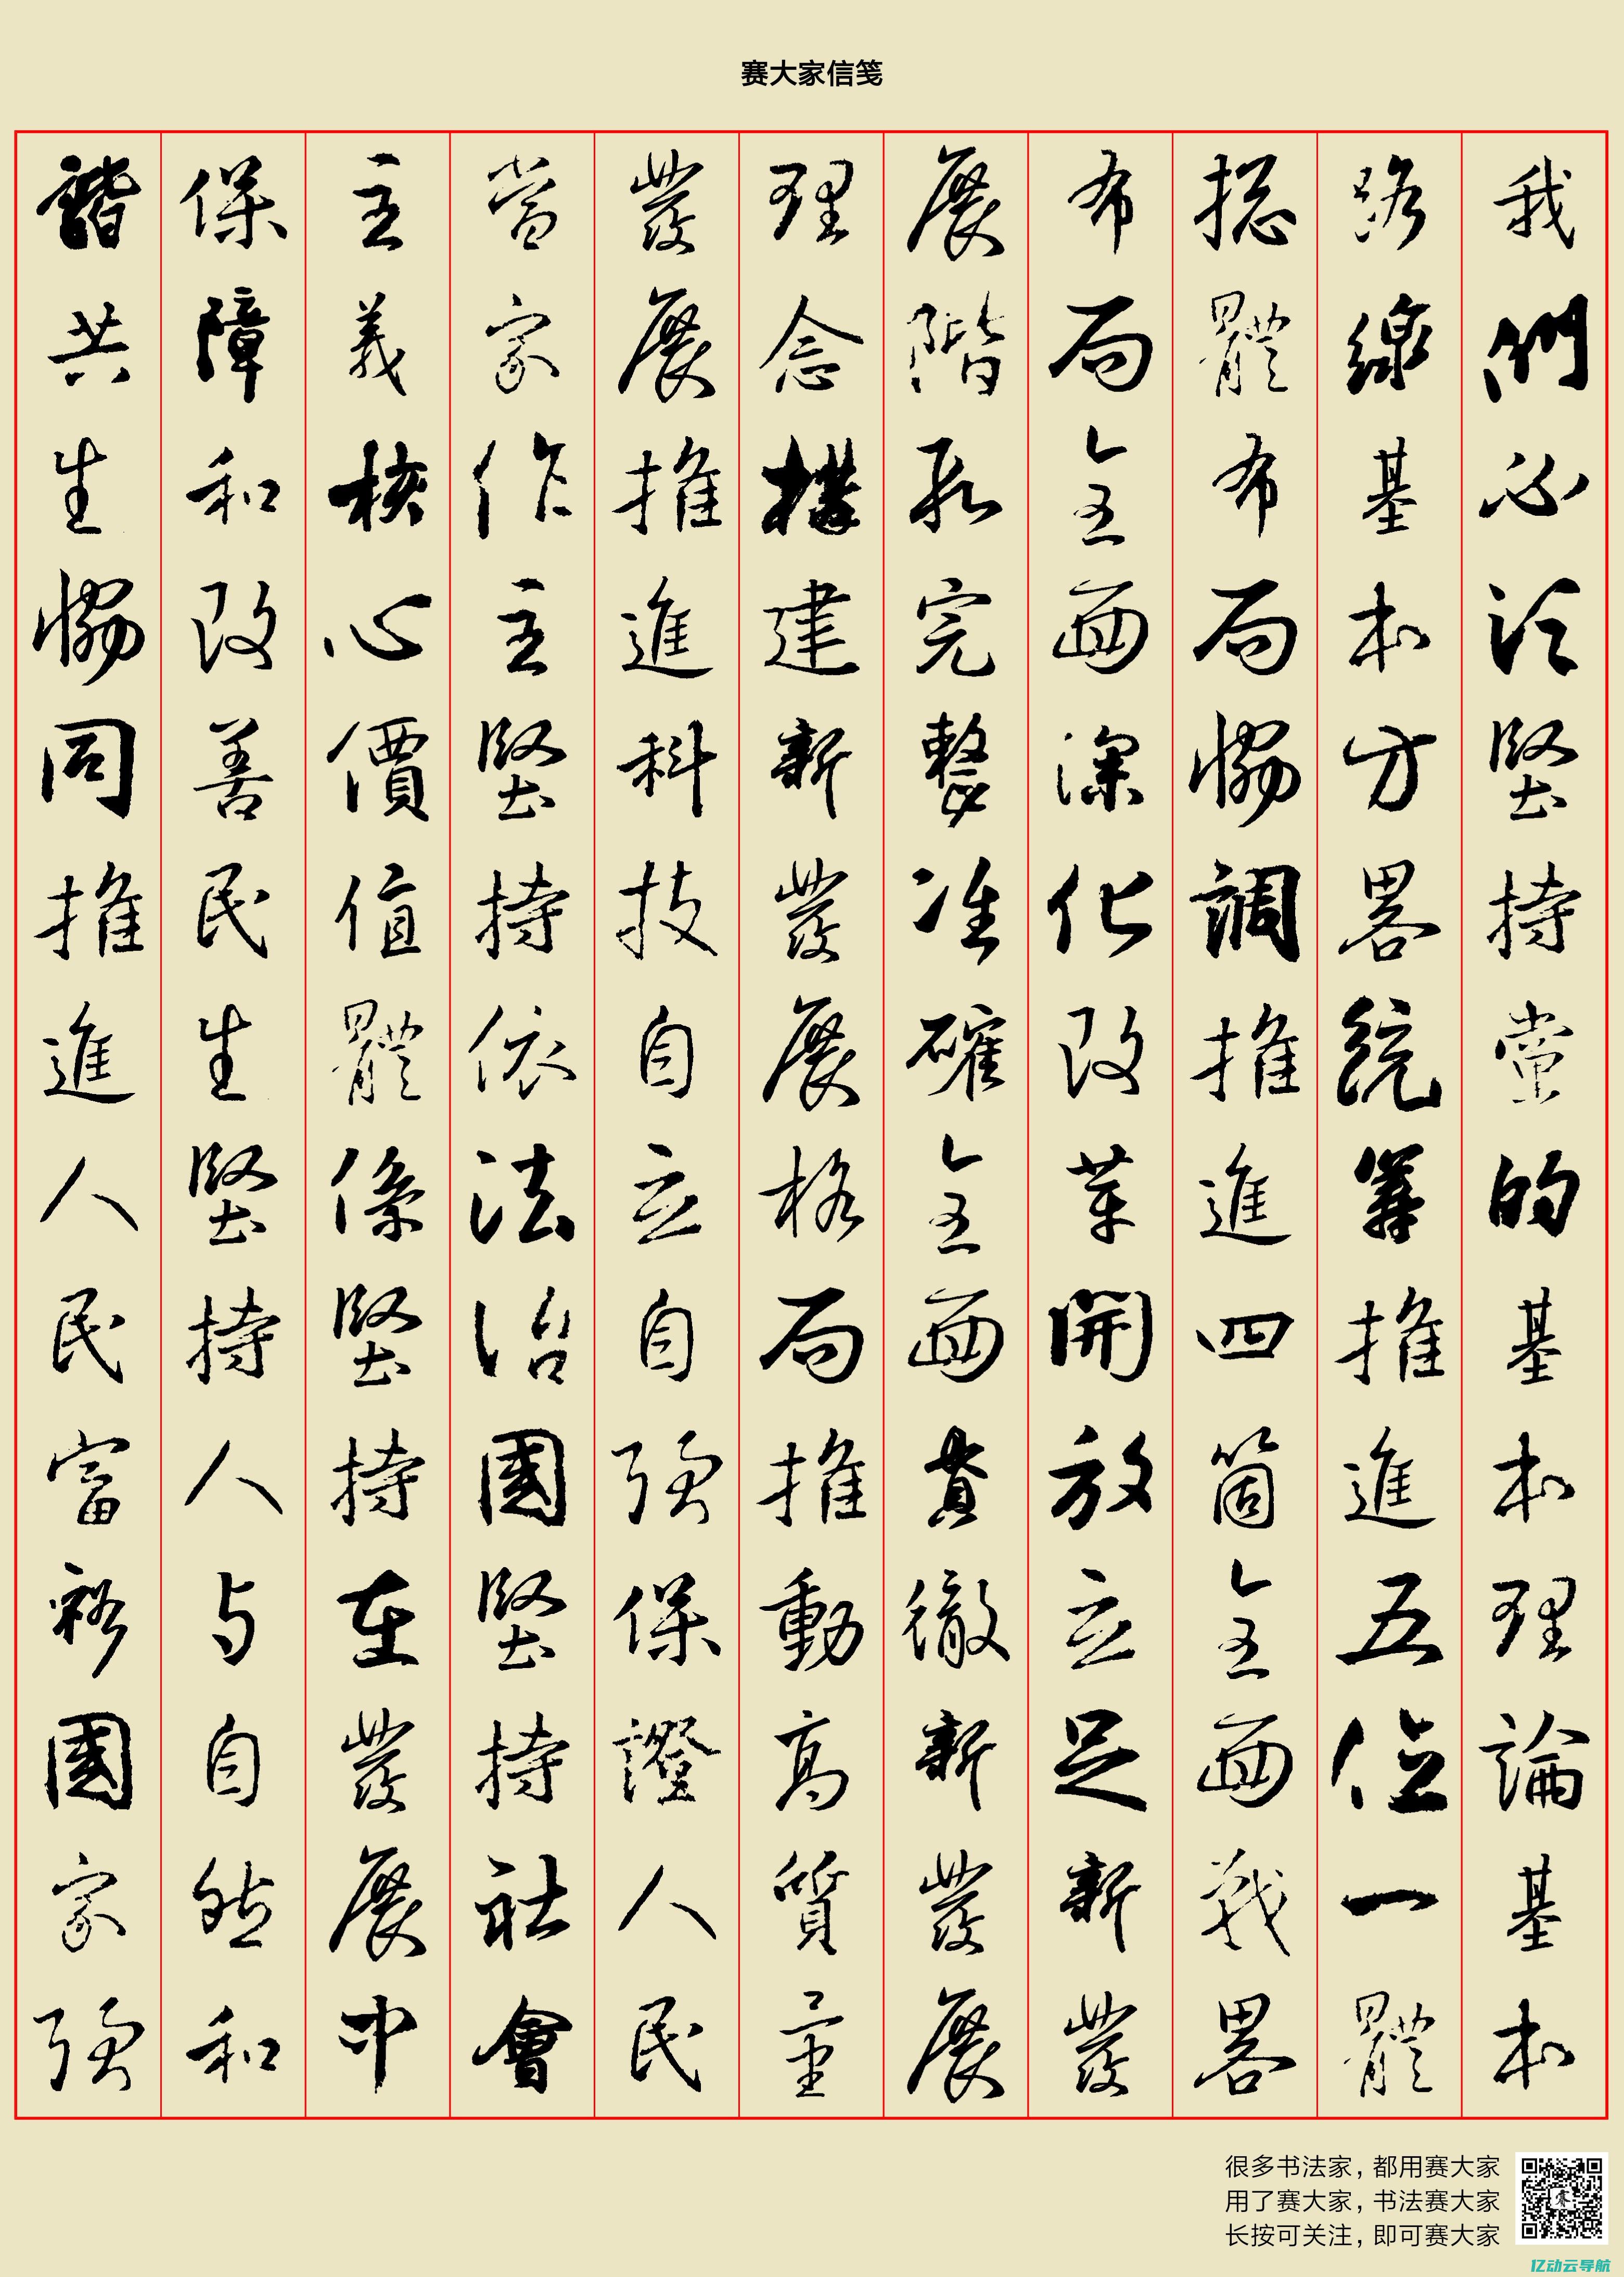 赛大家信笺
我們必須堅持黨的基本理論基本
路線基本方畧統籌推進五位一體
揔體布局恊調推進四箇全面戰畧
布局全面深化改革開放立足新發
展階段完整准確全面貫徹新發展
理念構建新發展格局推動高質量
發展推進科技自立自強保證人民
當家作主堅持依法治國堅持社會
主義核心價值體係堅持在發展中
保障和改善民生堅持人与自然和
諧共生恊同推進人民富裕國家強
很多书法家，都用赛大家
用了赛大家，书法赛大家
长按可关注，即可赛大家
亿动云导航